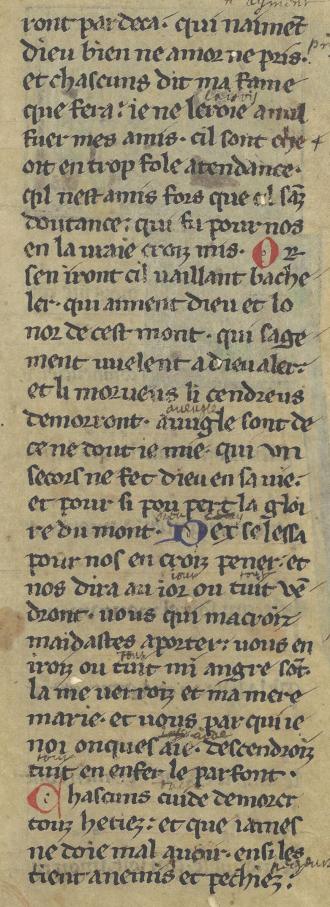 ront par deca. qui naimēt
dieu bien ne amor ne pris.
et chascuns dit ma fame
que fera: ie ne leroie a nul
fuer mes amis. cil sont che
oit en trop fole atendance.
qil nest amis fors que cil sāz
doutance: qui fu pour nos
en la uraie croiz mis. Or
sen iront cil uaillant bache
ler. qui aiment dieu et lo
nor de cest mont. qui sage
ment uuelent a dieu aler:
et li morueus li cendreus
demorront. auugle sont de
ce ne dout ie mie. qui vn
secors ne fet dieu en sa uie.
et pour si pou pert la gloi
re du mont. Dex se lessa
pour nos en croiz pener. et
nos dira au ior ou tuit vē
dront. vous qui ma croiz
maidastes a porter: vous en
iroiz ou tuit mi angre sōt.
la me uerroiz et ma mere
marie. et uous par qui ie
noi onques aie. descendroiz
tuit en enfer le parfont.
Chascuns cuide demorer
touz hetiez: et que iames
ne doie mal auoir. ensi les
tient anemis et pechiez: